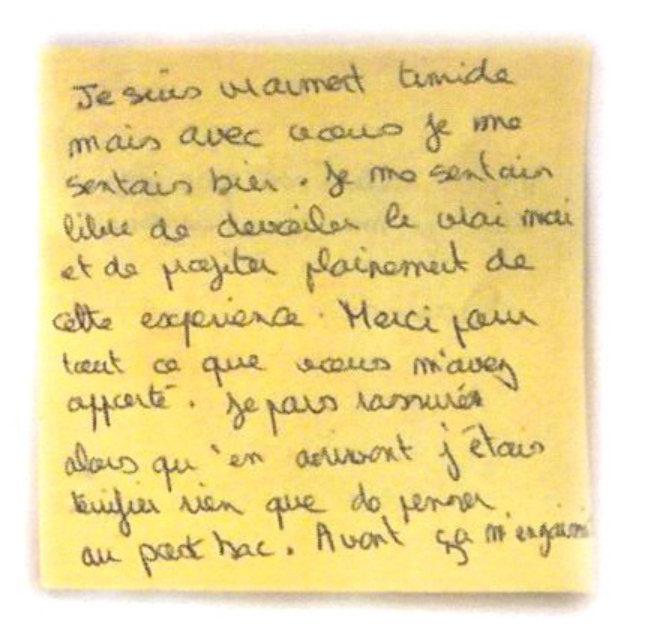 Je suis vraiment timide
mais avec vous je me
sentais bien. Je me sentais
libre de dévoiler le vrai moi
et de profiter plainement de
cette experience. Merci pour
tout ce que vous m'avez
apporté. Je pars rassurée
alors qu'en arrivant j'étais
terrifier rien que de penser
au post bac. Avant ça